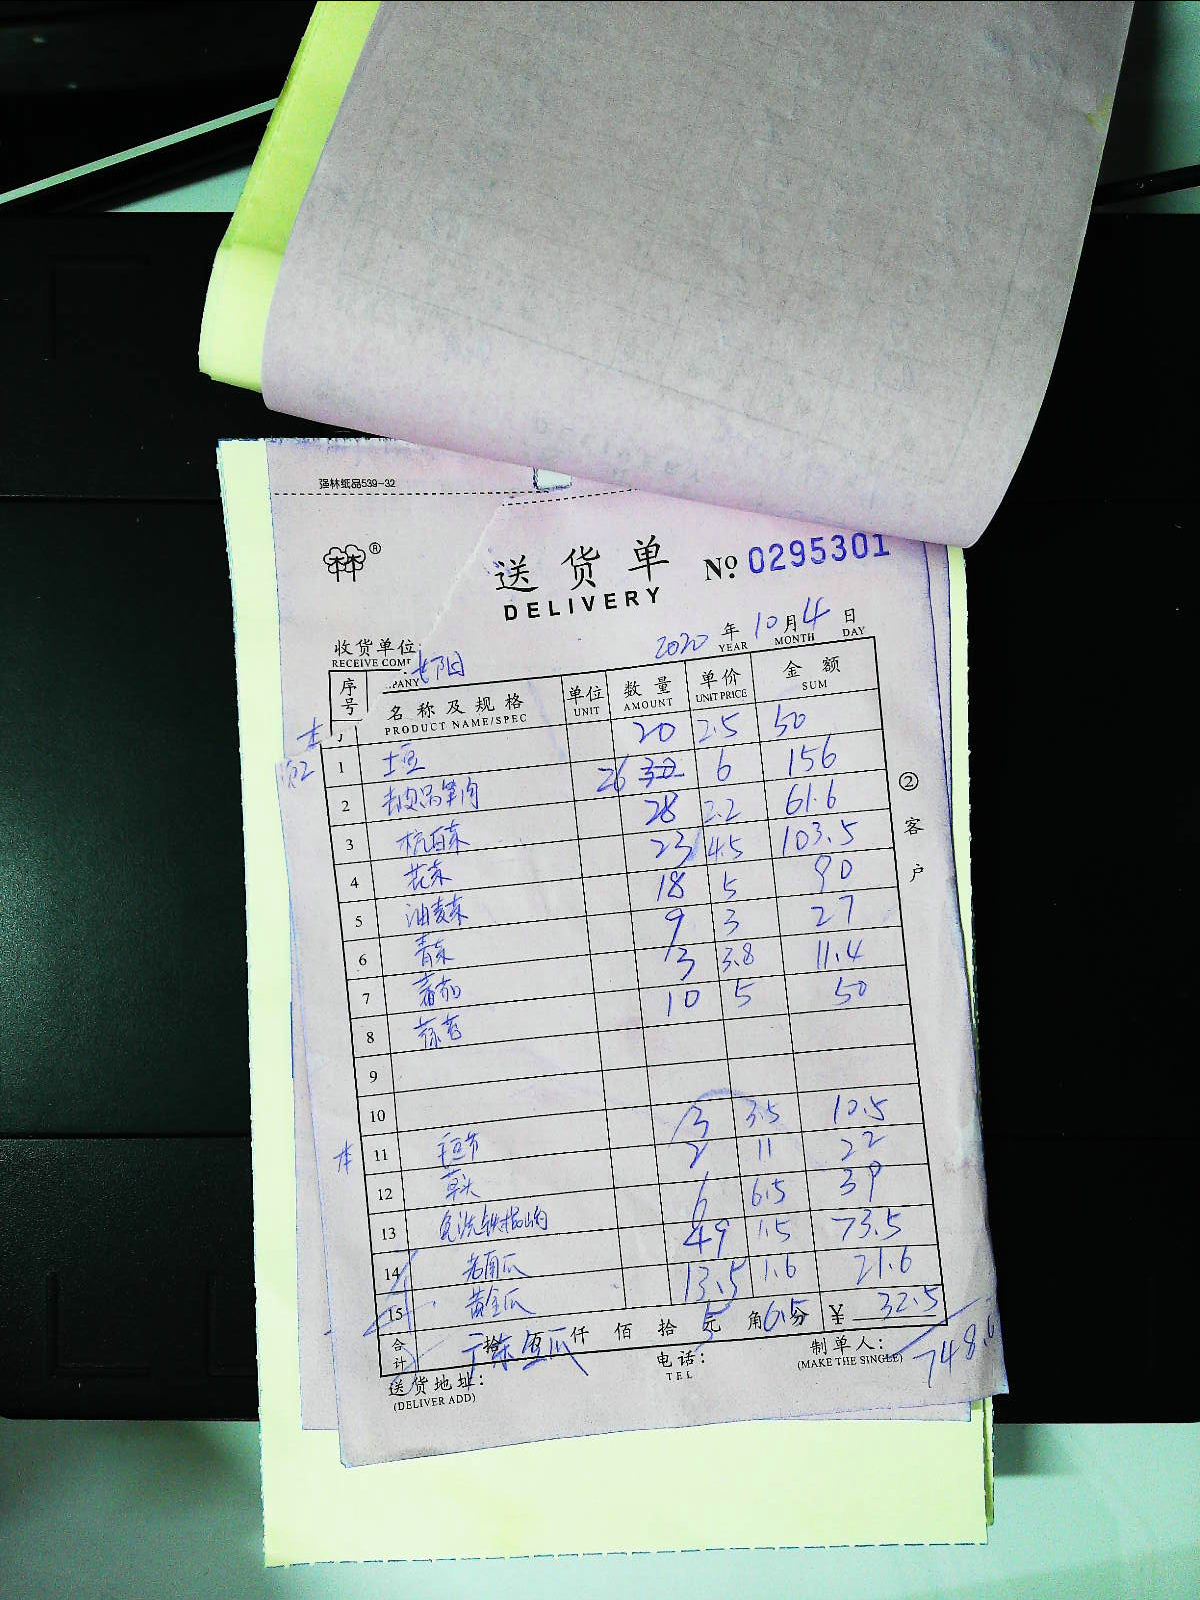 强林纸品539-32
林林®
送货单 No. 0295301
DELIVERY
收货单位:
RECEIVE COMPANY
2020年10月4日
YEAR MONTH DAY
序号 名称及规格 单位 数量 单价 金额
PRODUCT NAME/SPEC UNIT AMOUNT UNIT PRICE SUM
1 土豆 20 2.5 50
2 去皮 26 6 156
3 杭白菜 28 2.2 61.6
4 花菜 23 4.5 103.5
5 油麦菜 18 5 90
6 青菜 9 3 27
7 番茄 3 3.8 11.4
8 10 5 50
9
10
11 3 3.5 10.5
12 草头 2 11 22
13 6 6.5 39
14 老南瓜 49 1.5 73.5
15 黄金瓜 13.5 1.6 21.6
合计 拾 万 仟 佰 拾 元 角 分 ¥ 32.5
广东 瓜 5 6.5
748.6
送货地址: 电话: 制单人:
(DELIVER ADD) TEL (MAKE THE SINGLE)
②客户